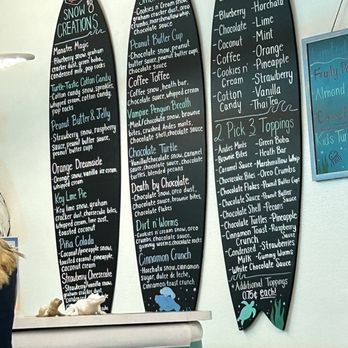 SNOW
CREATIONS
Manatee Magic
Blueberry snow, graham
cracker dust, green boba,
condensed milk, pop rocks
Turtle-Tastic Cotton Candy
Cotton candy snow, sprinkles,
whipped cream, cotton candy,
pop rocks
Peanut Butter & Jelly
Strawberry snow, raspberry
Sauce, peanut butter sauce,
peanut butter cups
Orange Dreamsicle
Orange snow, vanilla ice cream
whipped cream
Key Lime Pie
Key lime snow, graham
cracker dust, cheesecake bites,
whipped cream, lime zest,
toasted coconut
Piña Colada
Coconut/Pineapple snow,
toasted coconut, pineapple
coconut cream
Strawberry Cheesecake
Cookies n Cream snow,
graham cracker dust, Oreo
crumbs, marshmallow
whip
Peanut Butter Cup
Chocolate snow, peanut
butter sauce, peanut butter
cups, chocolate sauce
Coffee Toffee
Coffee snow, heath bar,
Chocolate sauce, whipped cream
Vampire Penguin Breath
Mint/Chocolate snow, brownie
bites, crushed Andes mints,
chocolate shell, chocolate sauce
Chocolate Turtle
Vanilla/chocolate snow, caramel
sauce, chocolate sauce, chocolate
turtles, blended pecans
Death by Chocolate
Chocolate snow, Oreo
crumbs, brownie bites,
chocolate sauce, whipped cream,
chocolate flakes
Dirt n Worms
Cookies n' cream snow, oreo
crumbs, chocolate sauce,
gummy worms, chocolate rocks
Cinnamon Crunch
Horchata snow, cinnamon
sugar, dulce de leche,
cinnamon toast crunch
-Blueberry
-Chocolate
-Coconut
-Coffee
-Cookies n'
Cream
-Cotton
Candy
-Horchata
-Lime
-Mint
-Orange
-Strawberry
-Vanilla
-Thai Tea
2 Pick 3 Toppings
-Andes Mints
-Brownie Bites
-Caramel Sauce
-Cheesecake Bites
-Chocolate Flakes
-Chocolate Sauce
-Chocolate Shell
-Chocolate Turtles
-Cinnamon Toast
Crunch
-Condensed
Milk
-White Chocolate Sauce
-Green Boba
-Heath Bar
-Marshmallow Whip
-Oreo Crumbs
-Peanut Butter Cup
-Peanut Butter Sauce
-Pecans
-Pineapple
-Raspberry
Sauce
-Strawberries
-Gummy Worms
Additional Toppings
0.75¢ each!
Almond
Kid's